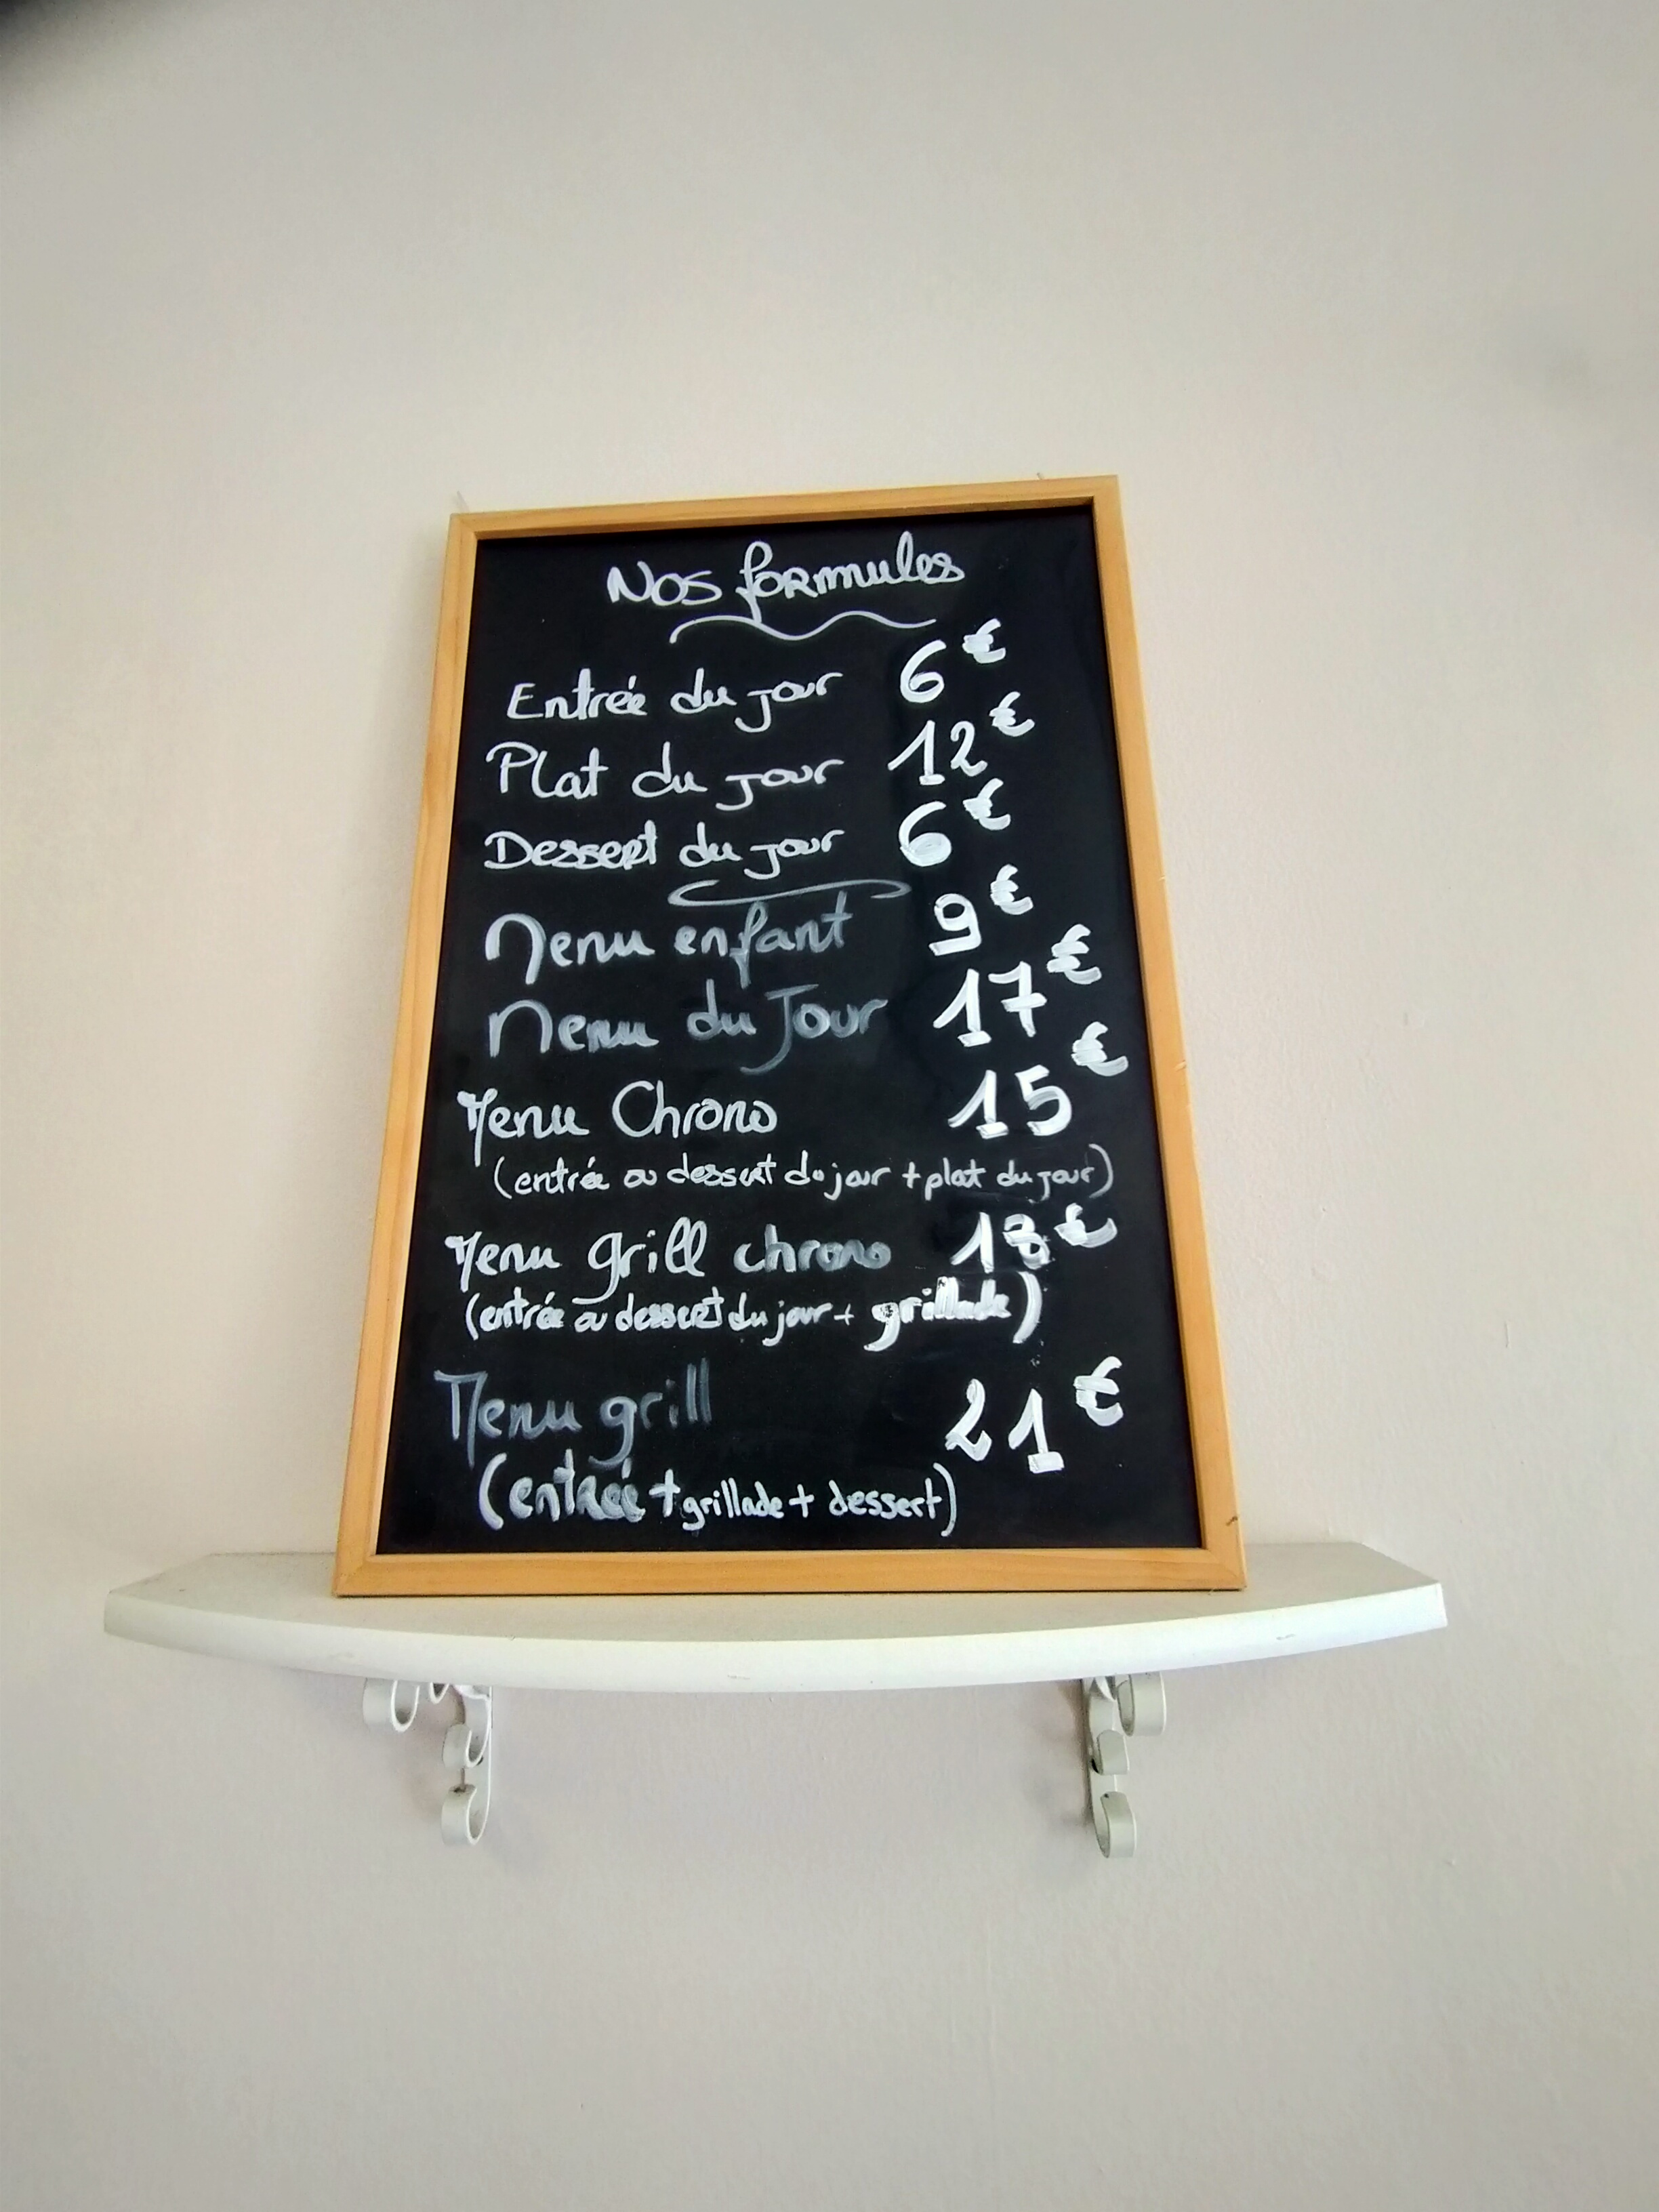 Nos formules
Entrée du jour 6€
Plat du jour 12€
Dessert du jour 6€
Menu enfant 9€
Menu du Jour 17€
Menu Chrono 15€
(entrée ou dessert du jour + plat du jour)
Menu grill chrono 18€
(entrée ou dessert du jour + grillade)
Menu grill 21€
(entrée + grillade + dessert)